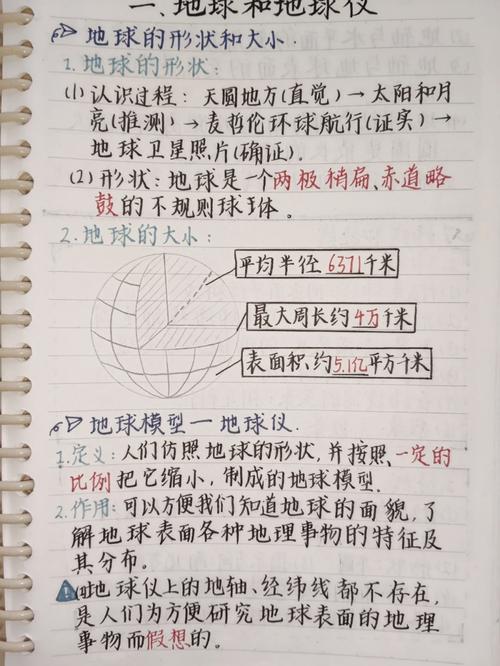 一、地球和地球仪
地球的形状和大小
1. 地球的形状:
(1) 认识过程: 天圆地方(直觉)→太阳和月
亮(推测)→麦哲伦环球航行(证实)→
地球卫星照片(确证).
(2) 形状: 地球是一个两极稍扁、赤道略
鼓的不规则球体。
2. 地球的大小:
平均半径 6371千米
最大周长约4万千米
表面积约5.1亿平方千米
地球模型一地球仪.
1.定义: 人们仿照地球的形状,并按照一定的
比例把它缩小,制成的地球模型.
2.作用: 可以方便我们知道地球的面貌,了
解地球表面各种地理事物的特征及
其分布。
地球仪上的地轴、经纬线都不存在,
是人们为方便研究地球表面的地理
事物而假想的。